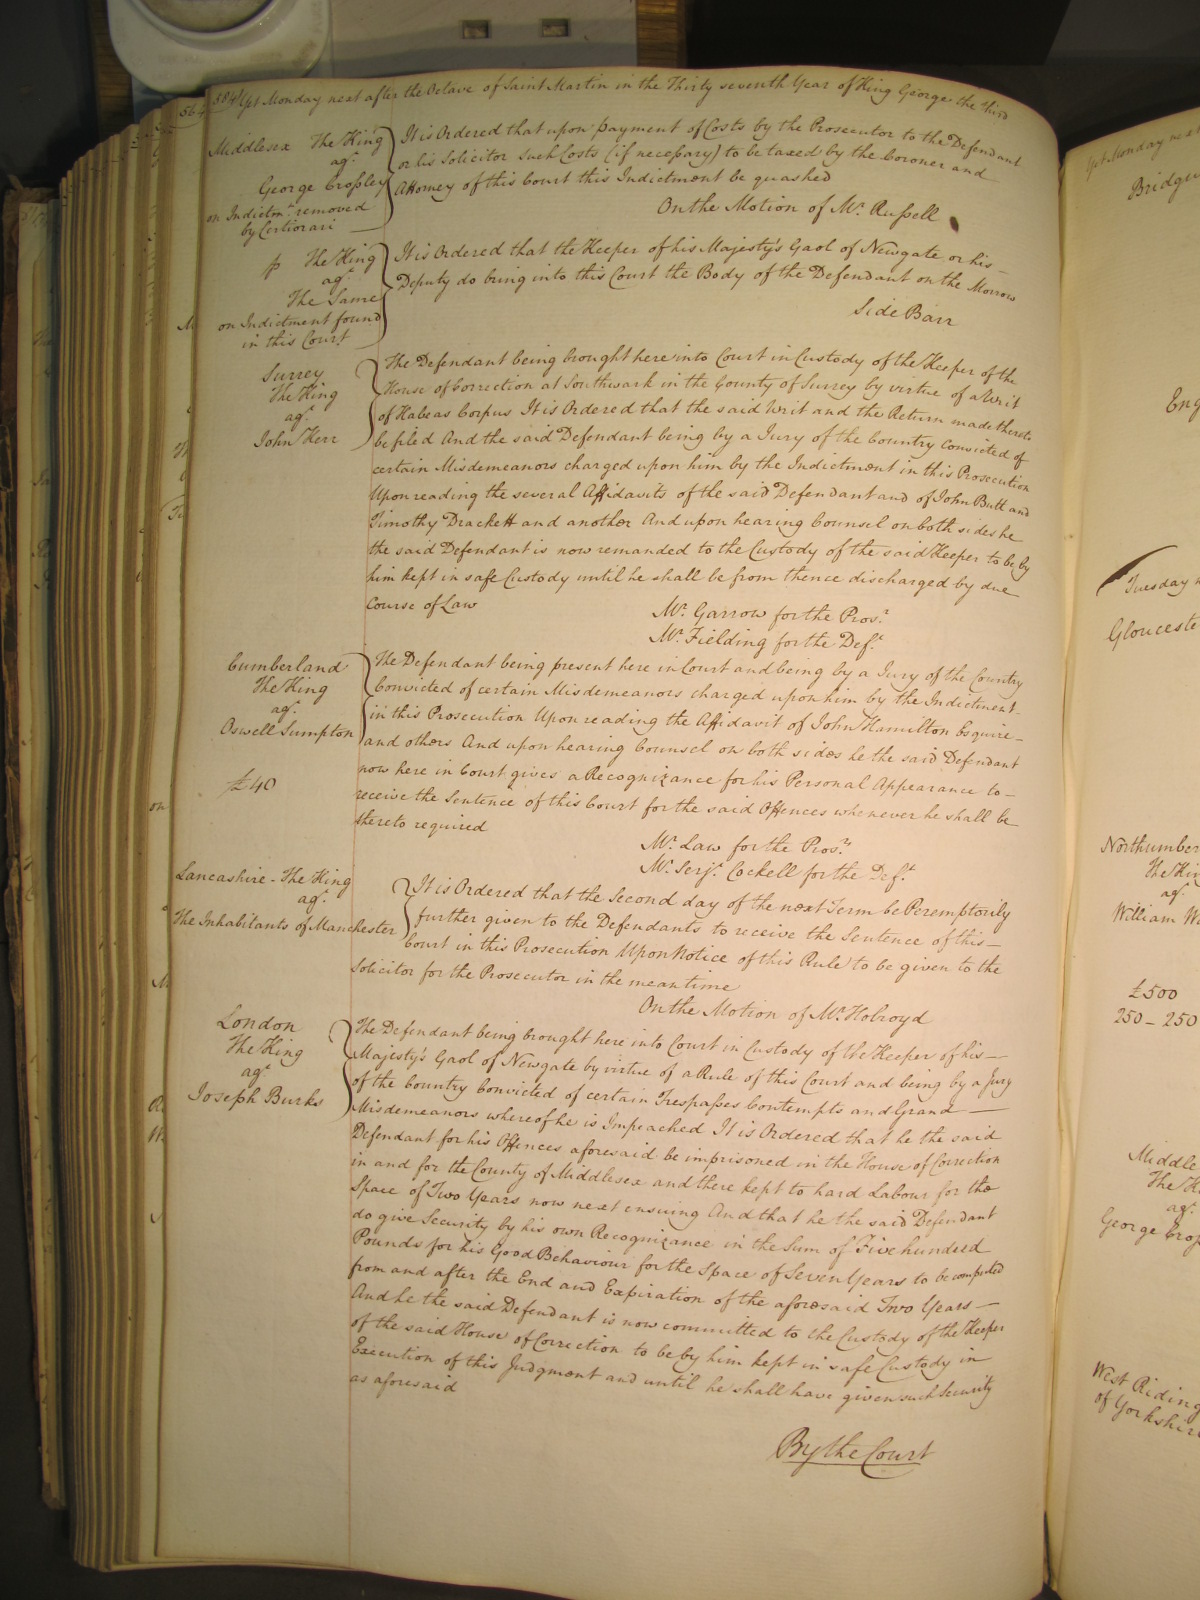 584 Yet Monday next after the Octave of Saint Martin in the Thirty seventh Year of King George the third
Middlesex The King
agt
George Crossley
on Indictmt removed
by Certiorari
It is Ordered that upon payment of Costs by the Prosecutor to the Defendant
or his Solicitor such Costs (if necessary) to be taxed by the Coroner and
Attorney of this Court this Indictment be quashed
On the Motion of Mr. Russell
The King
agt
The Same
on Indictment found
in this Court
It is Ordered that the Keeper of his Majesty's Gaol of Newgate or his
Deputy do bring into this Court the Body of the Defendant on the Morrow
Side Barr
Surrey
The King
agt
John Kerr
The Defendant being brought here into Court in Custody of the Keeper of the
House of Correction at Southwark in the County of Surrey by virtue of a Writ
of Habeas Corpus It is Ordered that the said Writ and the Return made thereto
be filed And the said Defendant being by a Jury of the Country convicted of
certain Misdemeanors charged upon him by the Indictment in this Prosecution
Upon reading the several Affidavits of the said Defendant and of John Butt and
Timothy Brackett and another And upon hearing Counsel on both sides he
the said Defendant is now remanded to the Custody of the said Keeper to be by
him kept in safe Custody until he shall be from thence discharged by due
Course of Law
Mr. Garrow for the Prosr.
Mr. Fielding for the Deft.
Cumberland
The King
agt.
Oswell Sumpton
£40
The Defendant being present here in Court and being by a Jury of the Country
Convicted of certain Misdemeanors charged upon him by the Indictment
in this Prosecution Upon reading the Affidavit of John Hamilton Esquire
and others And upon hearing Counsel on both sides he the said Defendant
now here in Court gives a Recognizance for his Personal Appearance to
receive the Sentence of this Court for the said Offences whenever he shall be
thereto required
Mr. Law for the Prosrs.
Mr. Serjt. Cockell for the Deft.
Lancashire - The King
agt.
The Inhabitants of Manchester
It is Ordered that the Second day of the next Term be Peremptorily
further given to the Defendants to receive the Sentence of this
Court in this Prosecution Upon Notice of this Rule to be given to the
Solicitor for the Prosecutor in the mean time
On the Motion of Mr. Holroyd
London
The King
agt
Joseph Burks
The Defendant being brought here into Court in Custody of the Keeper of his
Majesty's Gaol of Newgate by virtue of a Rule of this Court and being by a Jury
of the Country Convicted of certain Trespasses Contempts and Grand
Misdemeanors whereof he is Impeached It is Ordered that he the said
Defendant for his Offences aforesaid be imprisoned in the House of Correction
in and for the County of Middlesex and there kept to hard Labour for the
Space of Two Years now next ensuing And that he the said Defendant
do give Security by his own Recognizance in the Sum of Five hundred
Pounds for his Good Behaviour for the Space of Seven Years to be computed
from and after the End and Expiration of the aforesaid Two Years
And he the said Defendant is now committed to the Custody of the Keeper
of the said House of Correction to be by him kept in safe Custody in
Execution of this Judgment and until he shall have given such Security
as aforesaid
By the Court
Yet Monday
Tuesday
Northumber
The King
agt.
William
£500
250 - 250
agt.
George
West Riding